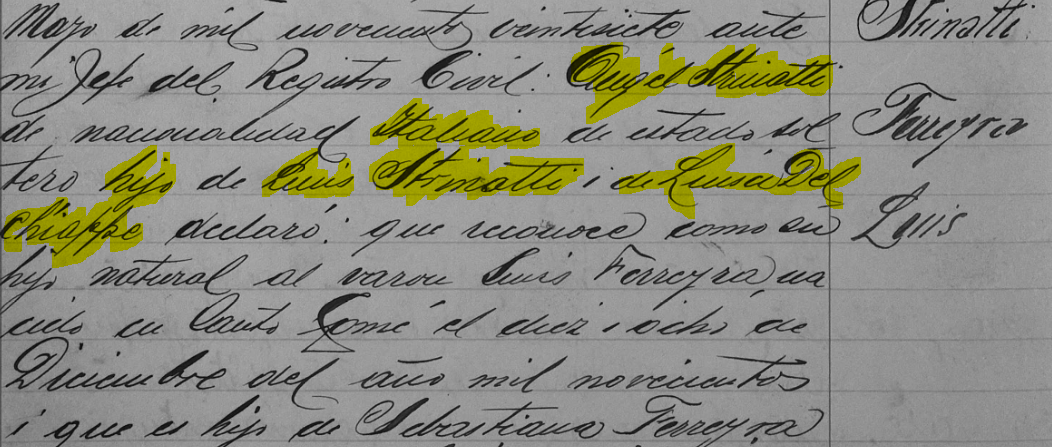 Mayo de mil novecientos veintisiete ante
mi Jefe del Registro Civil: Angel Strinatti
de nacionalidad Italiano de estado sol
tero hijo de Luis Strinatti i de Luisa Del
Chiappe declaró: que reconoce como su
hijo natural al varon Luis Ferreyra na
cido en Santo Tomé el diez i ocho de
Diciembre del año mil novecientos
i que es hijo de Sebastiana Ferreyra
Strinatti
Ferreyra
Luis